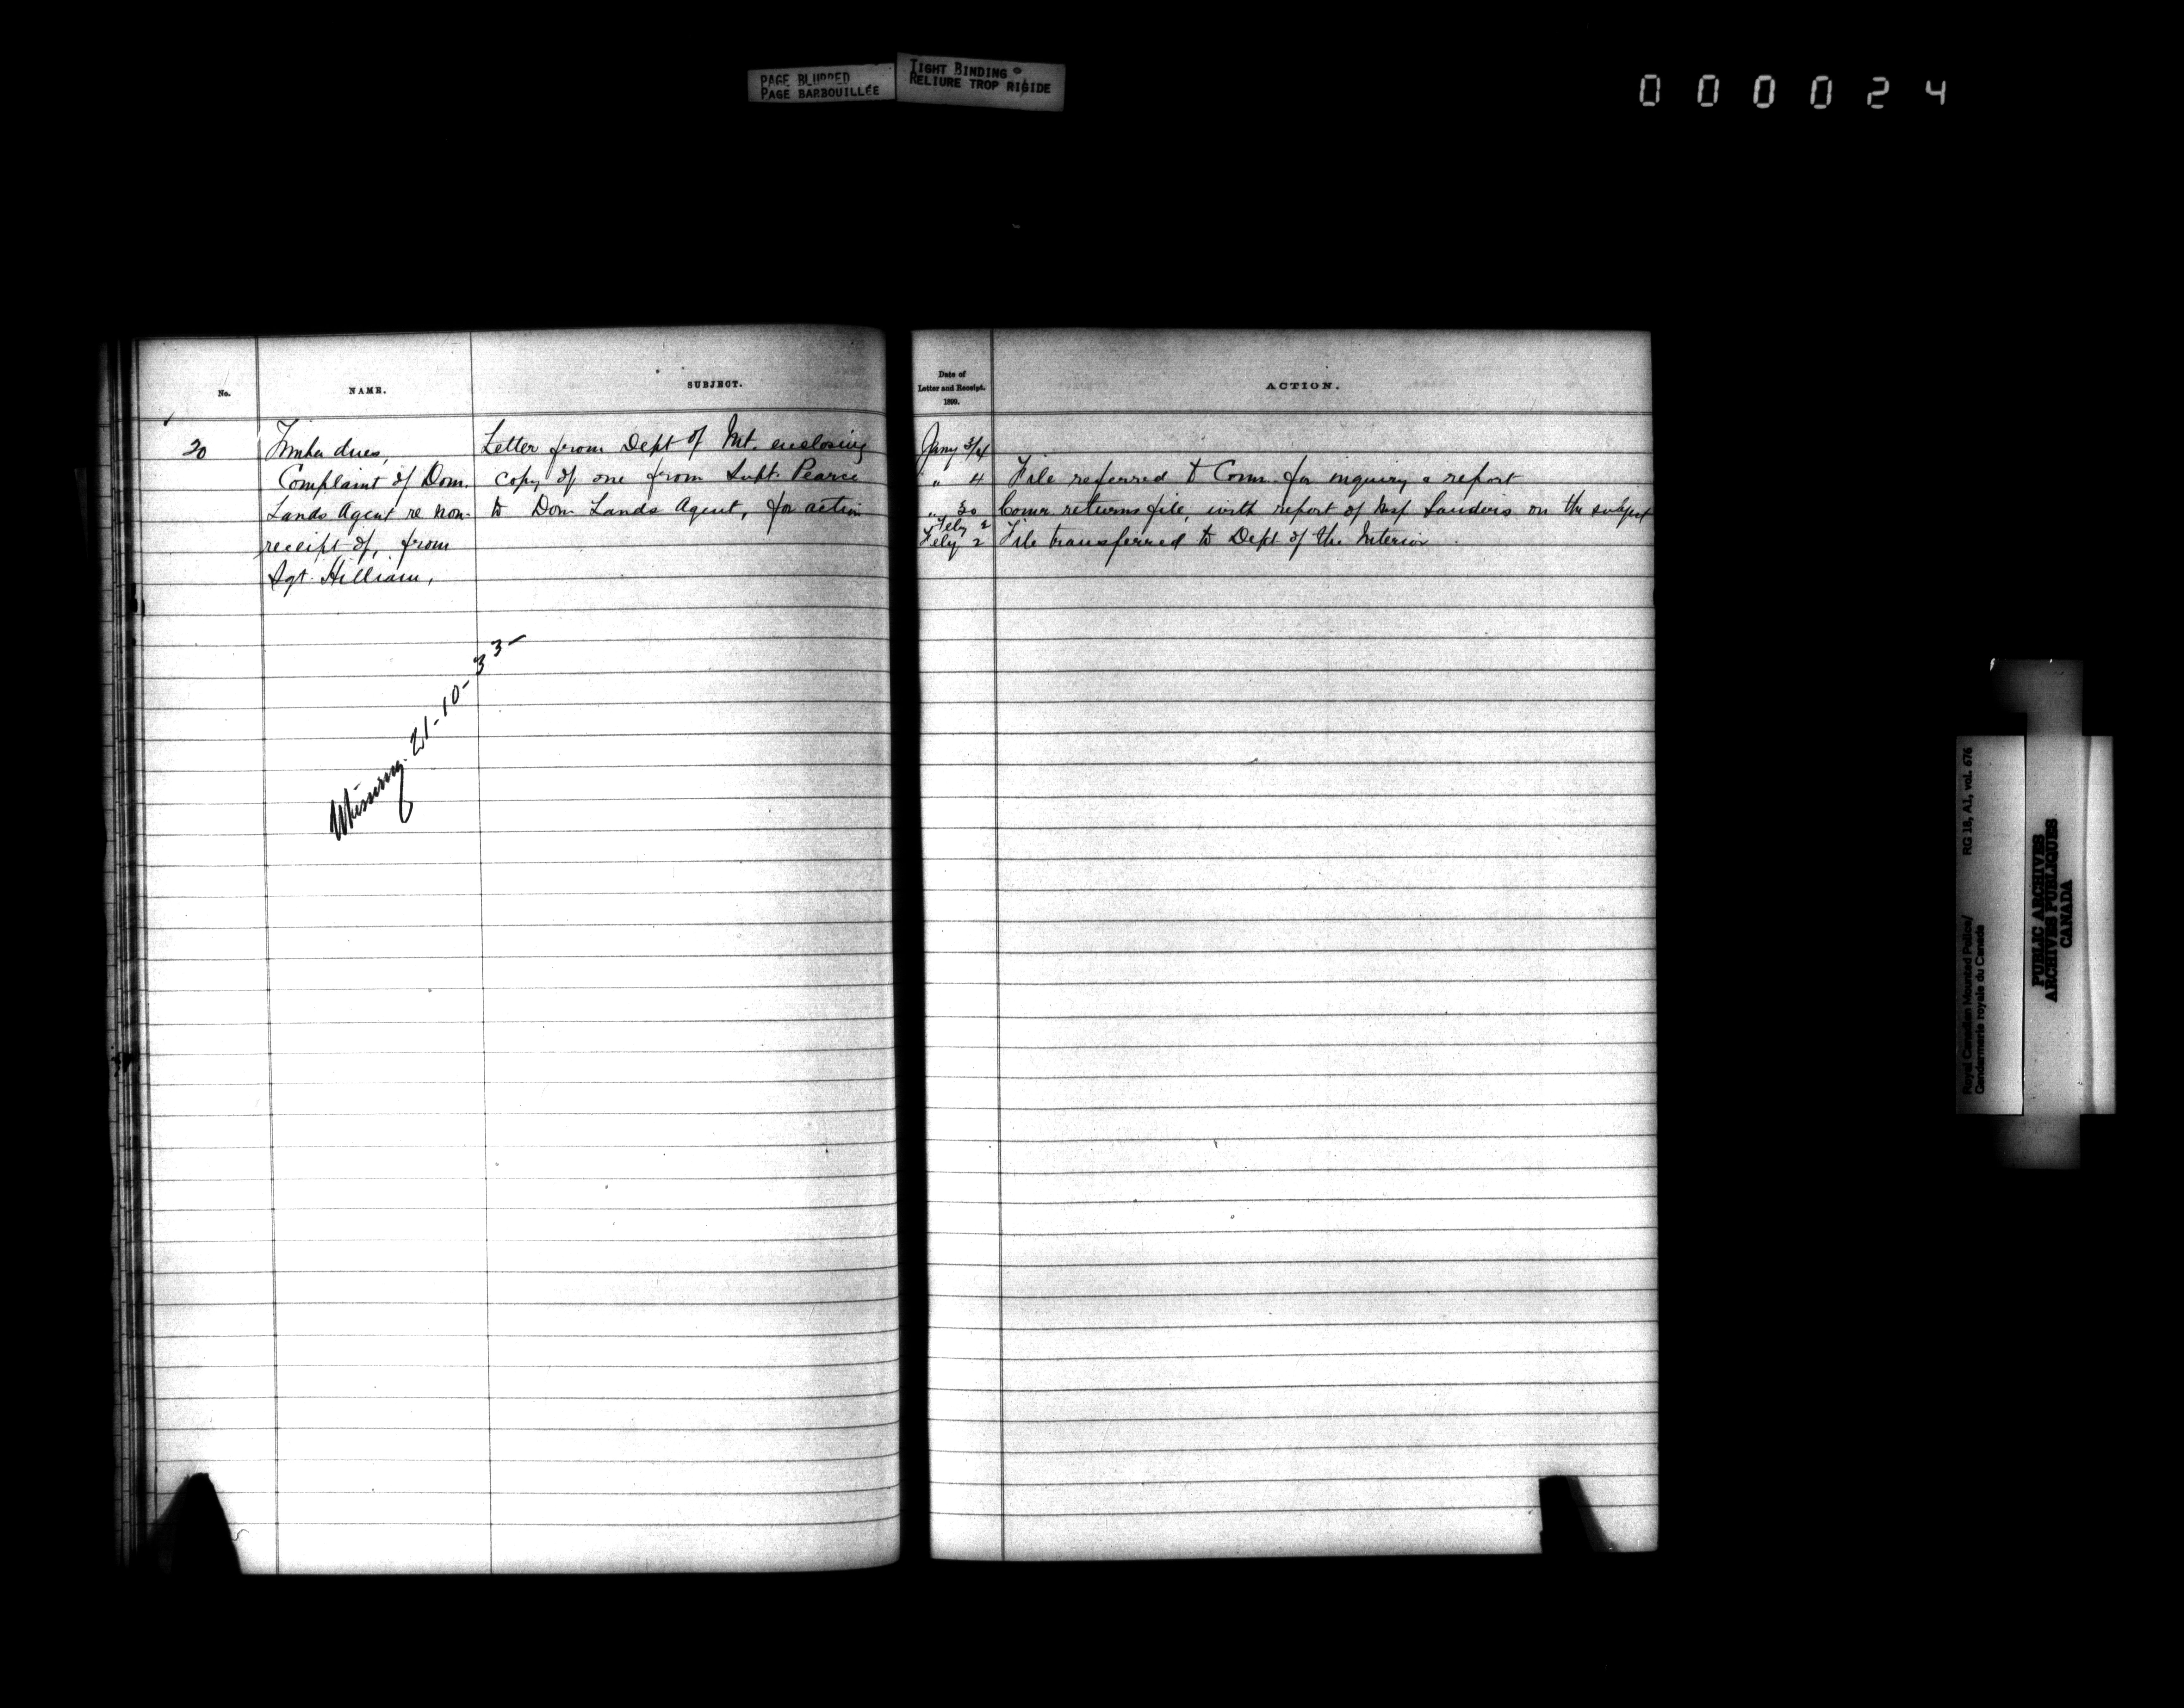 PAGE BLURRED
PAGE BARBOUILLÉE
TIGHT BINDING
RELIURE TROP RIGIDE
000024
No.
NAME.
SUBJECT.
Date of
Letter and Receipt.
1899.
ACTION.
20
Timber dues,
Complaint of Dom.
Lands Agent re non-
receipt of, from
Sgt. Hilliam,
Letter from Dept of Int. enclosing
copy of one from Supt. Pearce
to Dom Lands Agent, for action
Jany 3/4
" 4 File referred to Comr. for inquiry & report
" 30 Comr returns file, with report of Insp Sanders on the subject
Feby 2
Feby 2 File transferred to Dept of the Interior.
Missing. 21-10-33-
Royal Canadian Mounted Police/
Gendarmerie royale du Canada
RG 18, A1, vol. 676
PUBLIC ARCHIVES
ARCHIVES PUBLIQUES
CANADA